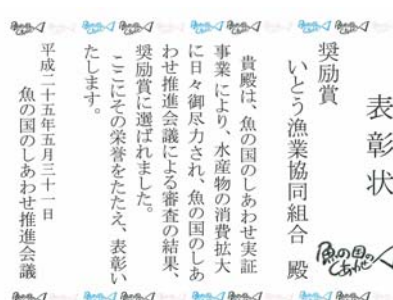 表彰状
魚の国のしあわせ
奨励賞
いとう漁業協同組合 殿
貴殿は、魚の国のしあわせ実証
事業 により、水産物の消費拡大
に日々御尽力され、魚の国のしあ
わせ推進会議による審査の結果、
奨励賞に選ばれました。
ここにその栄誉をたたえ、表彰い
たします。
平成二十五年五月三十一日
魚の国のしあわせ推進会議